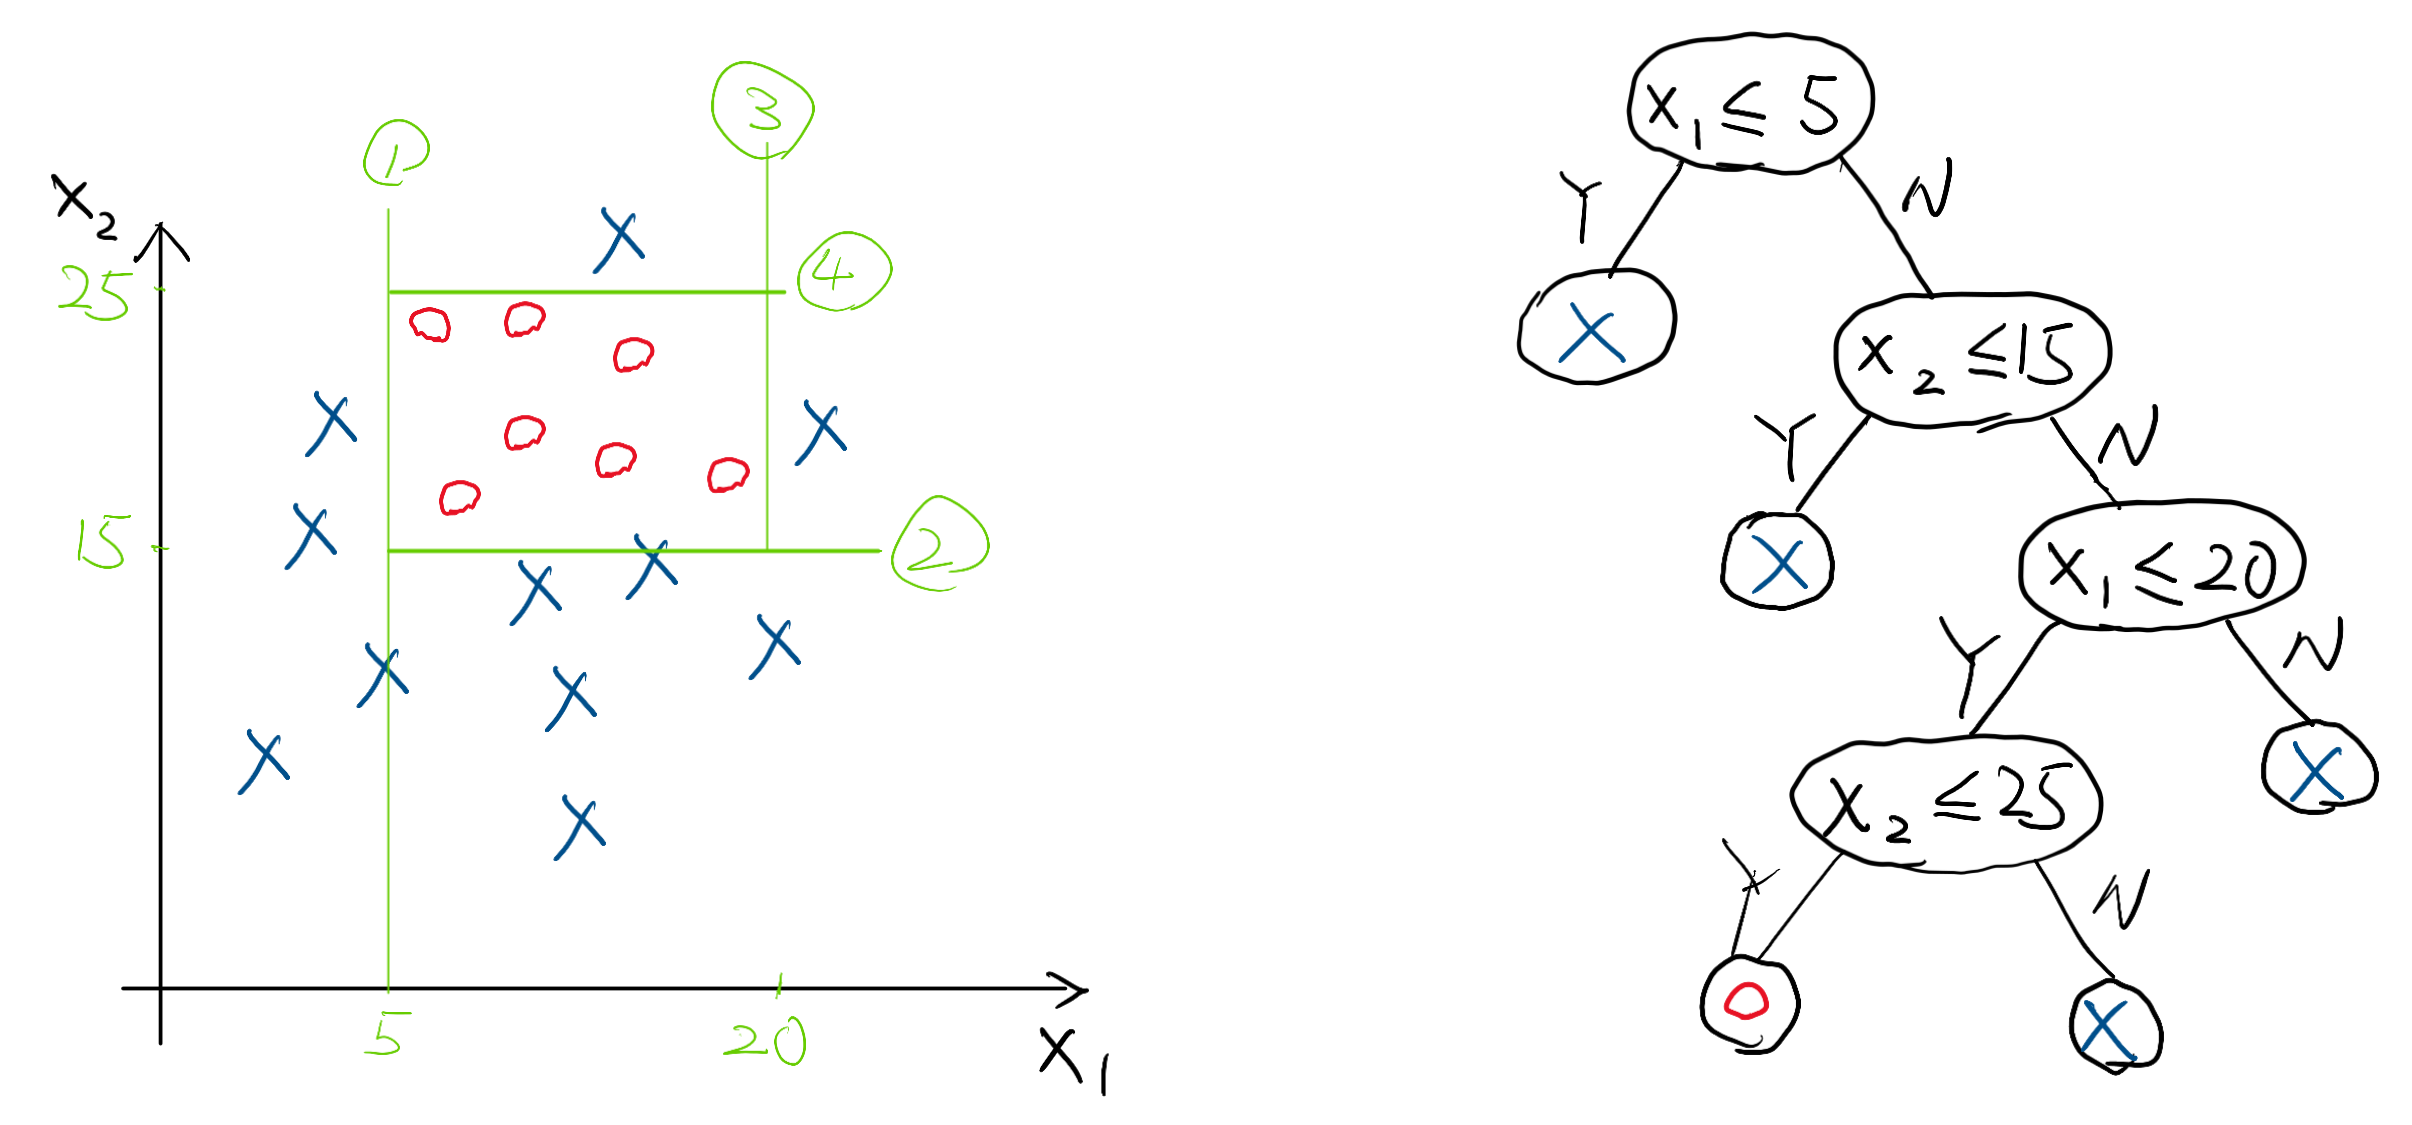 3
1
x₂
4
25
15
2
5
20
x₁
x₁ ≤ 5
Y
N
X
x₂ ≤ 15
Y
N
X
x₁ ≤ 20
Y
N
X
x₂ ≤ 25
Y
N
O
X